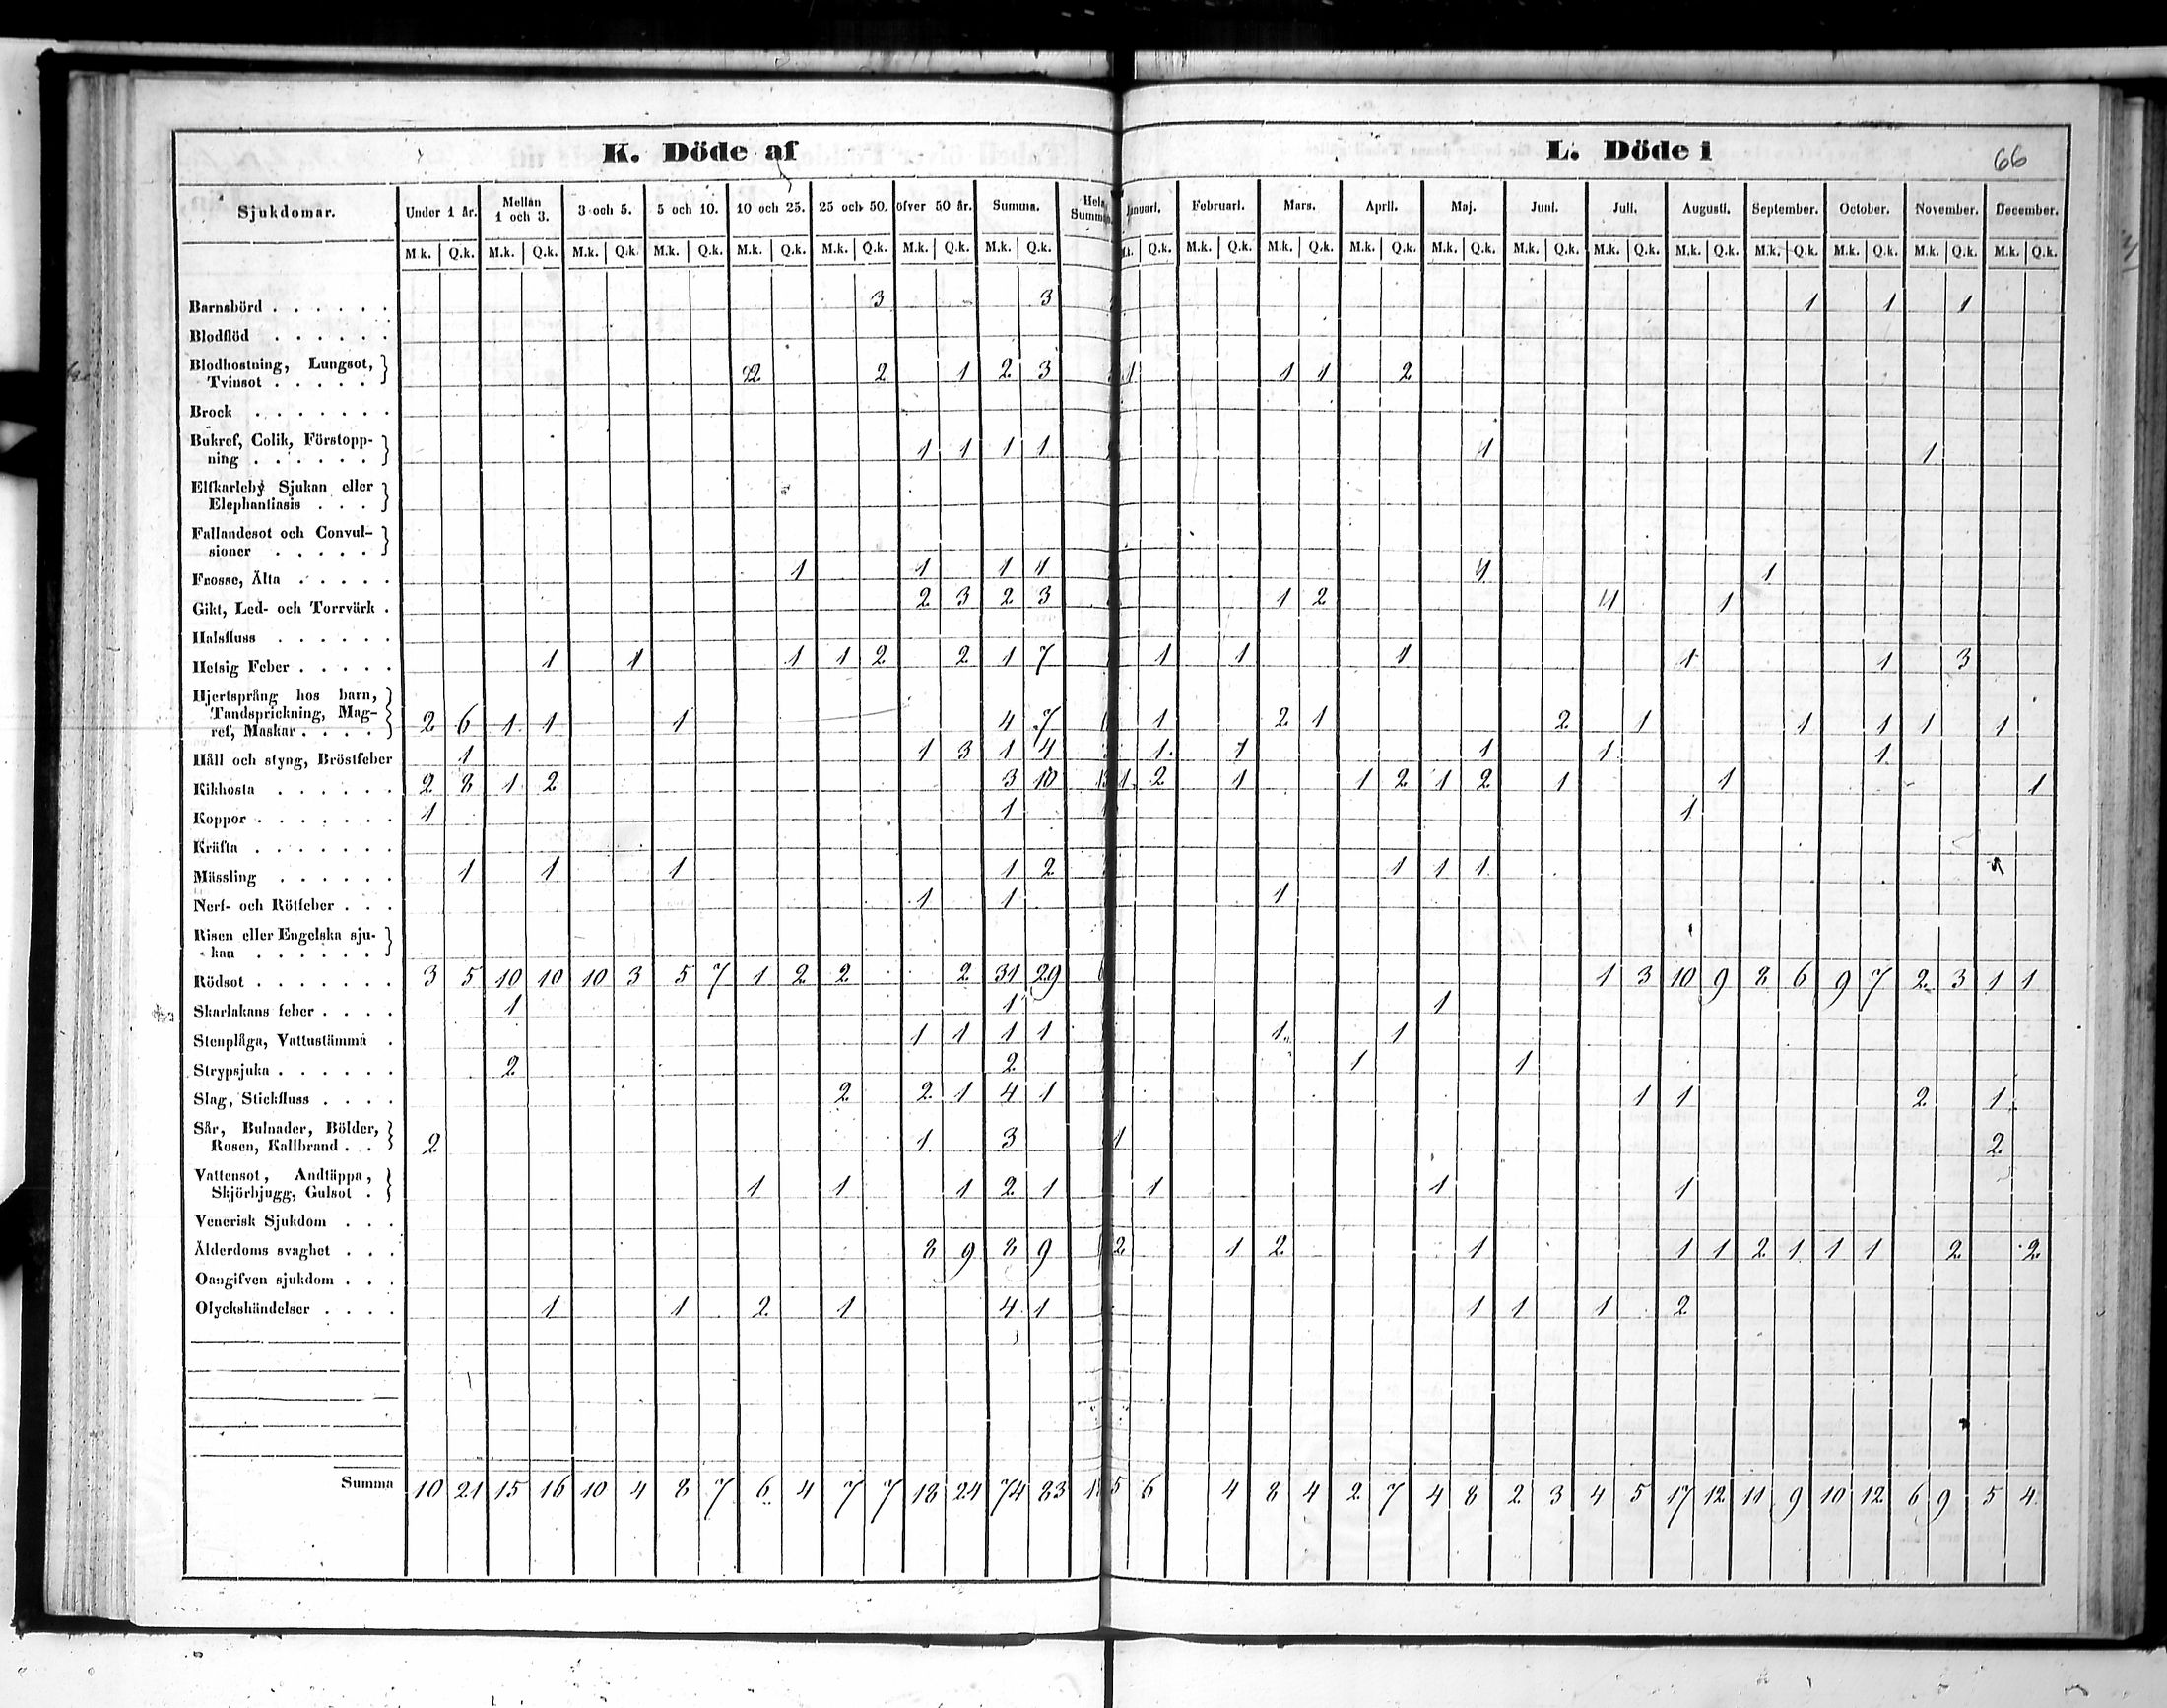 K. Döde af
L. Döde i
66
Sjukdomar. Under 1 år. Mellan 1 och 3. 3 och 5. 5 och 10. 10 och 25. 25 och 50. öfver 50 år. Summa. Hela Summan. Januari. Februari. Mars. April. Maj. Juni. Juli. Augusti. September. October. November. December.
M.k. Q.k. M.k. Q.k. M.k. Q.k. M.k. Q.k. M.k. Q.k. M.k. Q.k. M.k. Q.k. M.k. Q.k. M.k. Q.k. M.k. Q.k. M.k. Q.k. M.k. Q.k. M.k. Q.k. M.k. Q.k. M.k. Q.k. M.k. Q.k. M.k. Q.k. M.k. Q.k. M.k. Q.k. M.k. Q.k.
Barnsbörd . . . . . . 3 3 1 1 1
Blodflöd . . . . . .
Blodhostning, Lungsot,
Tvinsot . . . . . 2 2 1 2 3 1 1 1 2
Brock . . . . . . .
Bukref, Colik, Förstopp-
ning . . . . . . 1 1 1 1 1 1
Elfkarleby Sjukan eller
Elephantiasis . . .
Fallandesot och Convul-
sioner . . . . .
Frosse, Älta . . . . . 1 1 1 1 1
Gikt, Led- och Torrvärk . 2 3 2 3 1 2 1
Halsfluss . . . . . .
Hetsig Feber . . . . . 1 1 1 1 2 2 1 7 1 1 1 1 1 3
Hjertsprång hos barn,
Tandsprickning, Mag-
ref, Maskar . . . . 2 6 1 1 1 4 7 1 2 1 2 1 1 1 1 1
Håll och styng, Bröstfeber 1 1 3 1 4 1 1 1 1 1
Kikhosta . . . . . . 2 8 1 2 3 10 13 1 2 1 1 2 1 2 1 1 1
Koppor . . . . . . . 1 1 1
Kräfta . . . . . . .
Mässling . . . . . . 1 1 1 1 2 1 1 1
Nerf- och Rötfeber . . . 1 1 1
Risen eller Engelska sju-
kan . . . . . .
Rödsot . . . . . . . 3 5 10 10 10 3 5 7 1 2 2 2 31 29 1 3 10 9 8 6 9 7 2 3 1 1
Skarlakans feber . . . . 1 1 1
Stenplåga, Vattustämma . 1 1 1 1 1 1
Strypsjuka . . . . . . 2 2 1 1
Slag, Stickfluss . . . . 2 2 1 4 1 1 1 2 1
Sår, Bulnader, Bölder,
Rosen, Kallbrand . . 2 1 3 1 2
Vattensot, Andtäppa,
Skjörbjugg, Gulsot . 1 1 1 2 1 1 1 1
Venerisk Sjukdom . . .
Ålderdoms svaghet . . . 8 9 8 9 2 1 2 1 1 1 2 1 1 1 2 2
Oangifven sjukdom . . .
Olyckshändelser . . . . 1 1 2 1 4 1 1 1 1 2
Summa 10 21 15 16 10 4 8 7 6 4 7 7 18 24 74 83 5 6 4 8 4 2 7 4 8 2 3 4 5 17 12 11 9 10 12 6 9 5 4